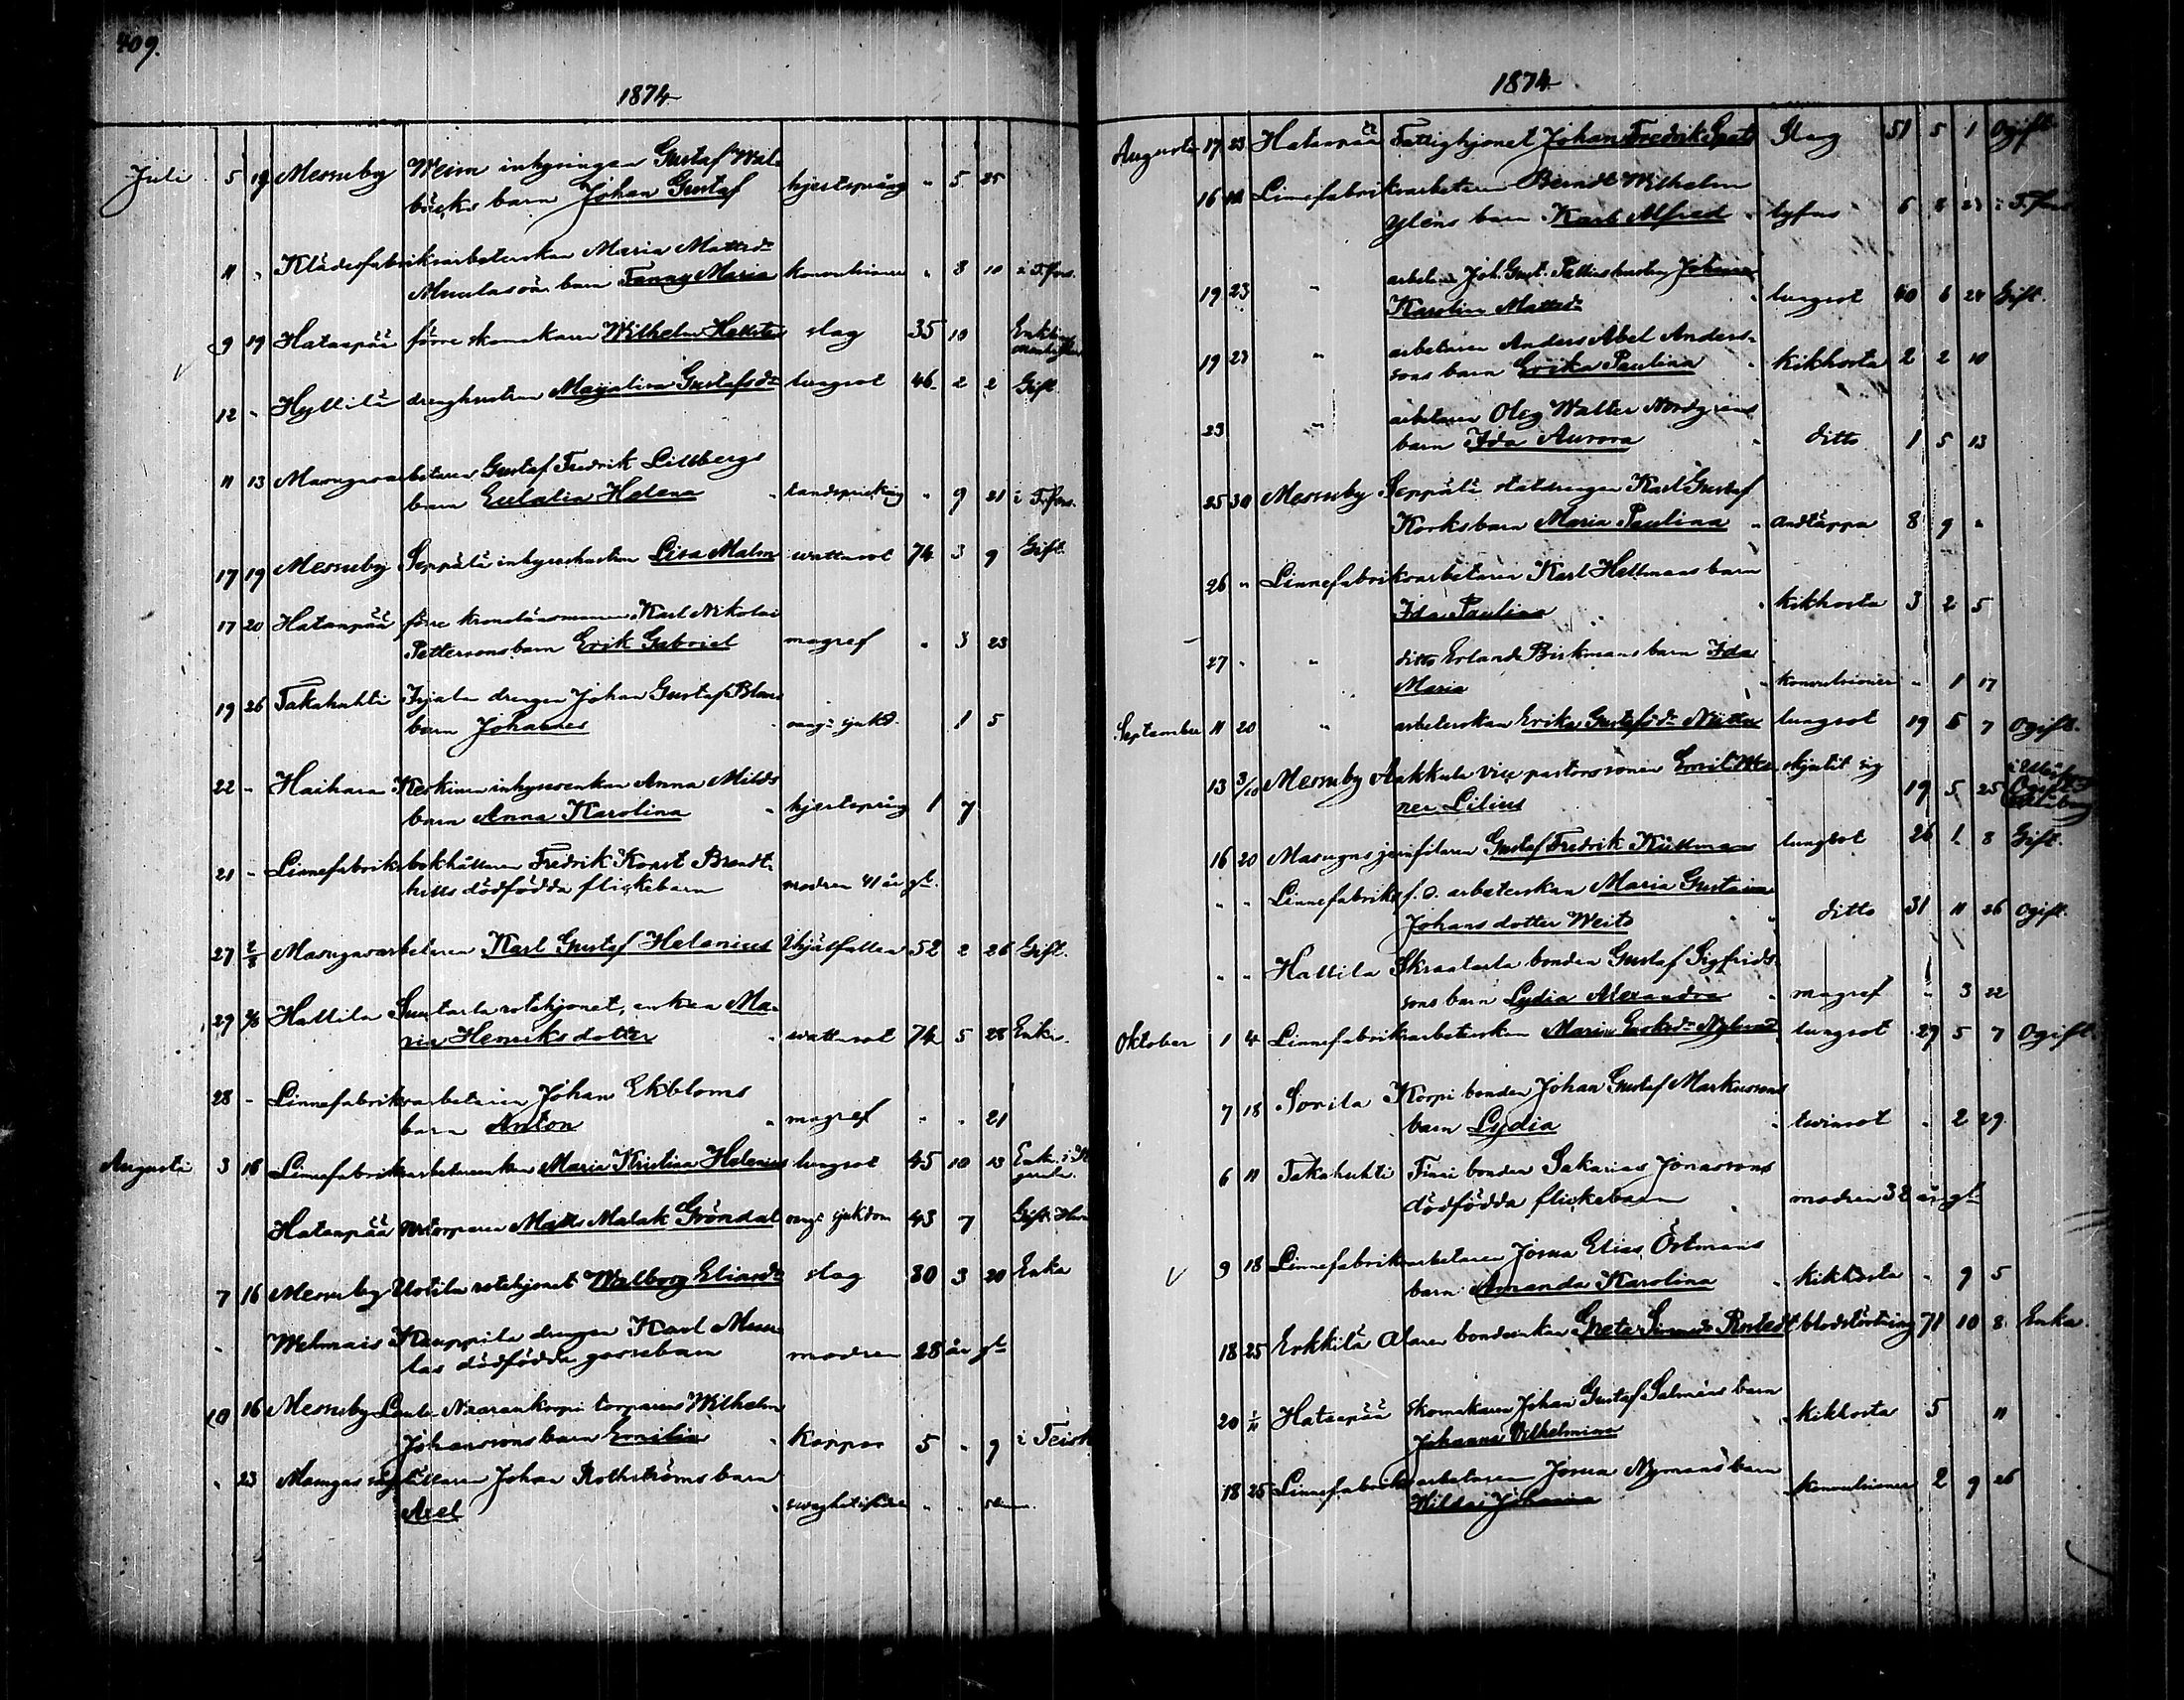 409.
1874
Juli 5 19 Messuby Weim inhysingen Gustaf Wal
bäcks barn Johan Gustaf hjertsprång " 5 25
11 " Klädesfabriksarbeterskan Maria Mattsdr
barn Fanny Maria konvulsioner " 8 10 i T.fors.
9 19 Hatanpää förre skomakaren Wilhelm slag 35 10 Enkling
12 " Hyllilä drenghustrun Majalisa Gustafsdr lungsot 46 2 2 Gift
11 13 Masugnsarbetaren Gustaf Fredrik Lillbergs
barn Eulalia Helena " tandsprickning " 9 21 i T.fors.
17 19 Messuby Seppälä inhyseshustrun Lisa Malm wattusot 74 3 9 Gift.
17 20 Hatanpää förre kronolänsmannen Karl Nikolai
Pettersons barn Erik Gabriel magref " 3 23
19 26 Takahuhti drengen Johan Gustaf
barn Johannes " sjukd. 1 5
22 " Haihara Keskinen inhysesenkan Anna Milds
barn Anna Karolina " hjertsprång 1 7
21 " Linnefabriks bokhållaren Fredrik Konst. Brandt
hills dödfödda flickebarn modren 41 år gl.
27 2/8 Masugnsarbetaren Karl Gustaf Helenius ihjälfallen 52 2 26 Gift.
29 Hallila Suntarla rotehjonet, enkan Ma-
ria Henriksdotter " wattusot 74 5 28 Enka.
28 " Linnefabriksarbetaren Johan Ekbloms
barn Anton " magref " " 21
Augusti 3 16 Linnefabriksarbetareenkan Maria Kristina Helenius lungsot 45 10 13 Enk.
Hatanpää Matts Malak Gröndal sjukdom 43 7 Gift
7 16 Messuby Uotila rotehjonet Walborg Eliaedr slag 80 3 20 Enka
" Wehmais Kauppila drengen Karl
las dödfödda gossebarn modren 28 år gl
10 16 Messuby Laula Naarankorpi torparens Wilhelm
Johanssons barn Emilia " Koppor 5 " 9 i Teisk
" 23 Masugns Johan Rothströms barn
Axel " " "
1874
Augusti 17 23 Hatanpää Fattighjonet Johan Fredrik Slag 51 5 1 Ogift
16 Linnefabriksarbetaren Berndt Wilhelm
Yléns barn Karl Alfred " tyfus 6 8 23 i T.fors
19 23 " arbetaren Joh. Gust. hustru Johanna
Karolina Mattsdr " lungsot 40 6 24 Gift.
19 23 " arbetaren Anders Abel Anders-
sons barn Erika Paulina " kikhosta 2 2 10
23 " arbetaren Oleg Walter Nordgrens
barn Ida Aurora " ditto 1 5 13
25 30 Messuby Seppälä statdrengen Karl Gustaf
Korks barn Maria Paulina " andtäppa 8 9 "
26 " Linnefabriksarbetaren Karl Hellmans barn
Ida Paulina " kikhosta 3 2 5
27 " " ditto Erland Birkmans barn Ida
Maria " konvulsioner " 1 17
September 11 20 " arbeterskan Erika Gustafsdr lungsot 19 5 7 Ogift.
13 3/10 Messuby Aakkula vice pastorssonen Emil Wer
ner Lilius " skjutit sig 19 5 25 Ogift
16 20 Masugns jernfilaren Gustaf Fredrik Kullman lungsot 26 1 8 Gift.
" " Linnefabriks f.d. arbeterskan Maria Gustava
Johansdotter " ditto 31 11 26 Ogift.
" " Hallila Skraatarla bonden Gustaf Sigfrids-
sons barn Lydia Alexandra " magref " 3 22
Oktober 1 4 Linnefabriksarbeterskan Maria lungsot 27 5 7 Ogift.
7 18 Sorila Korpi bonden Johan Gustaf Markussons
barn Lydia " twinsot " 2 29
6 11 Takahuhti Finni bonden Sakarias Jonassons
dödfödda flickebarn modren 32 år gl
9 18 Linnefabriksarbetaren Josua Elias Östmans
barn Amanda Karolina " kikhosta " 9 5
18 25 Erkkilä Alanen bondeenkan Greta blodstörtning 71 10 8 Enka.
20 1/11 Hatanpää skomakaren Johan Gustaf Salmens barn
Johanna Wilhelmina " kikhosta 5 11
18 25 Linnefabriksarbetaren Josua Nymans barn
Hilda Johanna " konvulsioner 2 9 26